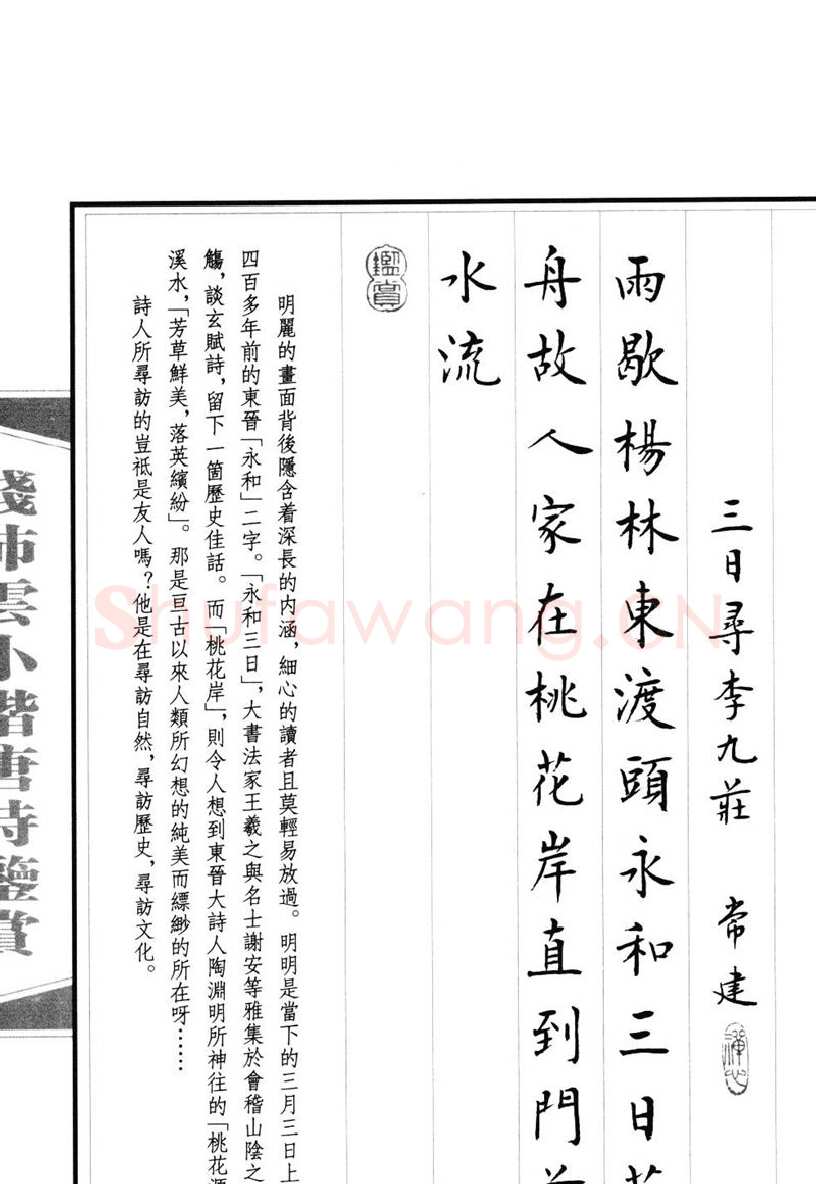 三日尋李九莊 常建
禪心
雨歇楊林東渡頭永和三日
舟故人家在桃花岸直到門
水流
鑑賞
明麗的畫面背後隱含着深長的内涵，細心的讀者且莫輕易放過。明明是當下的三月三日上
四百多年前的東晉「永和」二字。「永和三日」，大書法家王羲之與名士謝安等雅集於會稽山陰之
觴，談玄賦詩，留下一箇歷史佳話。而「桃花岸」，則令人想到東晉大詩人陶淵明所神往的「桃花源
溪水，「芳草鮮美，落英繽紛」。那是亘古以來人類所幻想的純美而縹緲的所在呀……
詩人所尋訪的豈祇是友人嗎？他是在尋訪自然，尋訪歷史，尋訪文化。
雲小楷唐詩鑒賞
Shufawang.CN